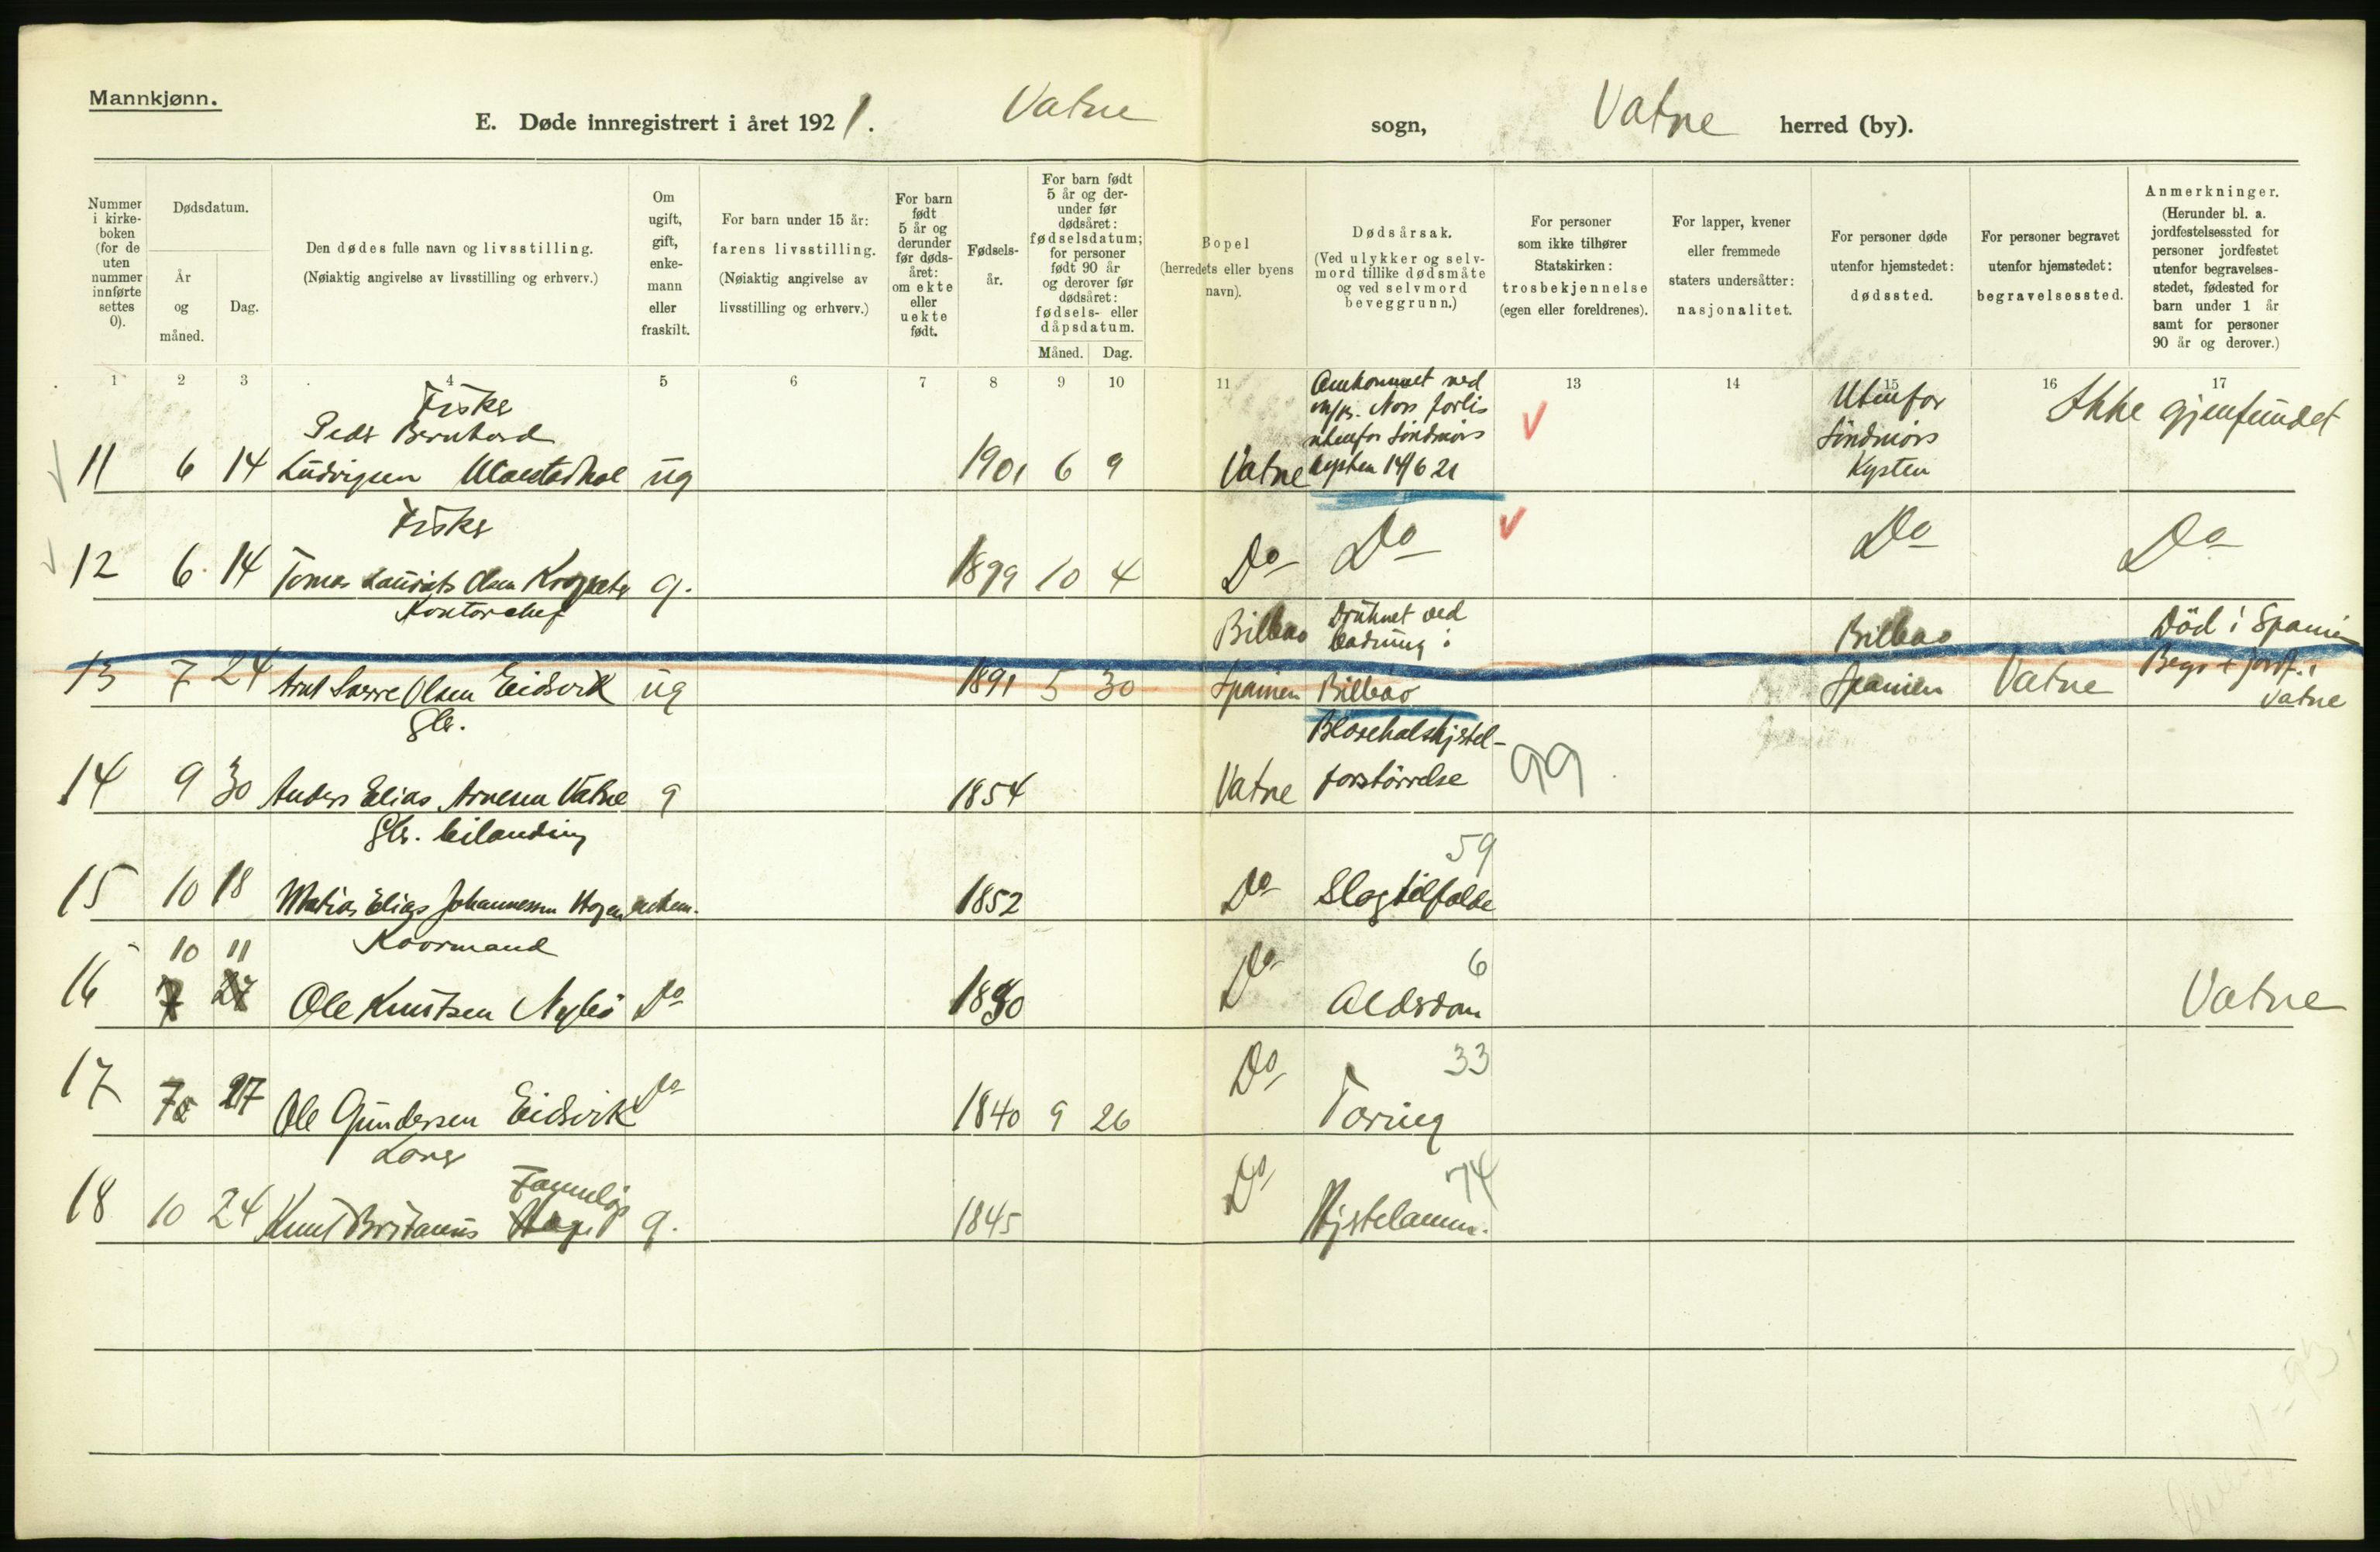 Mannkjønn.
E. Døde innregistrert i året 1921. Vatne sogn, Vatne herred (by).
Nummer i kirke-boken (for de uten nummer innførte settes 0).
Dødsdatum.
År og måned.
Dag.
Den dødes fulle navn og livsstilling.
(Nøiaktig angivelse av livsstilling og erhverv.)
Om ugift, gift, enke-mann eller fraskilt.
For barn under 15 år:
farens livsstilling.
(Nøiaktig angivelse av livsstilling og erhverv.)
For barn født 5 år og derunder før døds-året: om ekte eller uekte født.
Fødsels-år.
For barn født 5 år og der-under før dødsåret: fødselsdatum; for personer født 90 år og derover før dødsåret: fødsels- eller dåpsdatum.
Måned. Dag.
Bopel
(herredets eller byens navn).
Dødsårsak.
(Ved ulykker og selv-mord tillike dødsmåte og ved selvmord beveggrunn.)
For personer som ikke tilhører Statskirken: trosbekjennelse (egen eller foreldrenes).
For lapper, kvener eller fremmede staters undersåtter: nasjonalitet.
For personer døde utenfor hjemstedet: dødssted.
For personer begravet utenfor hjemstedet: begravelsessted.
Anmerkninger.
(Herunder bl. a. jordfestelsessted for personer jordfestet utenfor begravelses-stedet, fødested for barn under 1 år samt for personer 90 år og derover.)
1 2 3 4 5 6 7 8 9 10 11 12 13 14 15 16 17
Fisker
Peder Bernhard
11 6 14 Ludvigsen ug 1901 6 9 Vatne
Omkommet ved
forlis
utenfor Söndmörs
kysten 14/6 21
Utenfor
Söndmörs
Kysten
Ikke gjenfundet
Fisker
12 6 14 Tomas Laurits Olsen g. 1899 10 4 Do Do Do Do
Kontorchef
13 7 24 Arnt Sverre Olsen Eidsvik ug 1891 5 30
Bilbao
Spanien
Druknet ved
badning i
Bilbao
Bilbao
Spanien
Vatne
Död i Spanien
Begr + jordf. i
Vatne
Gbr.
14 9 30 Anders Elias Arnesen Vatne g 1854 Vatne
Blærehalskjertel-
forstörrelse
99
Gbr.
15 10 18 Matias Elias Johannessen 1852 Do
59
Slagtilfælde
10 11
Kaarmand
16 7 27 Ole Knutsen Nybö Do 1830 Do
6
Alderdom
Vatne
17 27 Ole Gundersen Eidsvik Do 1840 9 26 Do
33
Tæring
18 10 24 Knut g. 1845 Do
74